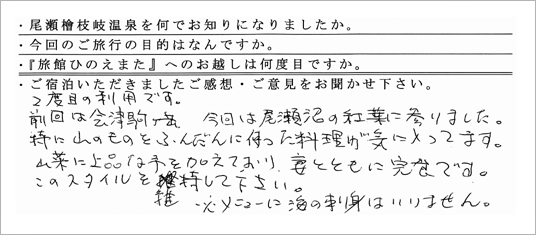 ・尾瀬檜枝岐温泉を何でお知りになりましたか。
・今回のご旅行の目的はなんですか。
・『旅館ひのえまた』へのお越しは何度目ですか。
・ご宿泊いただきましたご感想・ご意見をお聞かせ下さい。
2度目の利用です。
前回は会津駒ヶ岳 今回は尾瀬沼の紅葉に参りました。
特に山のものをふんだんに使った料理が気に入ってます。
山菜に上品な手を加えており、妻とともに完食です。
このスタイルを維持して下さい。
維
※メニューに海の刺身はいりません。